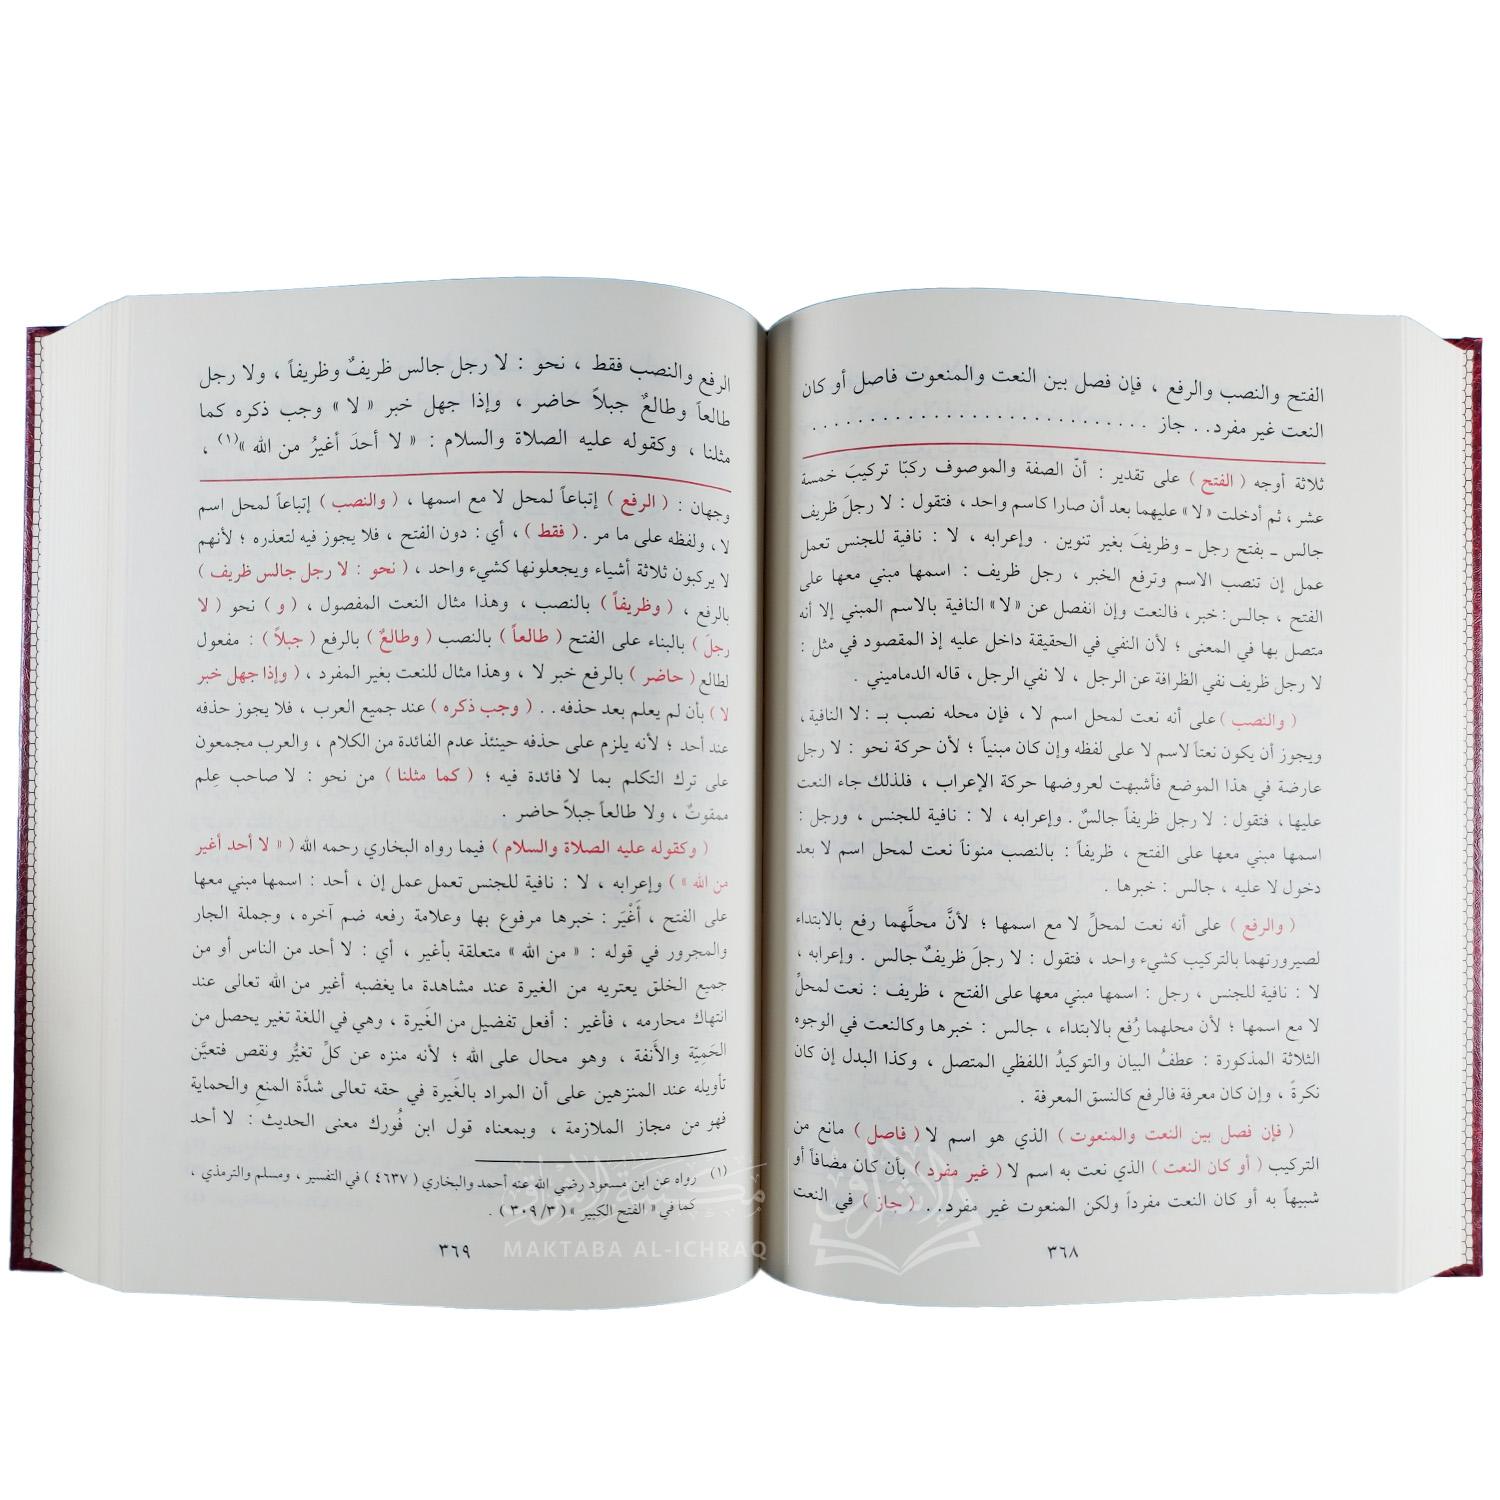 الفتح والنصب والرفع ، فإن فصل بين النعت والمنعوت فاصل أو كان
النعت غير مفرد. . جاز . . . . . . . . . . . . . . . . . . . . . . . . . . . . .
ثلاثة أوجه ( الفتح ) على تقدير : أنّ الصفة والموصوف ركبّا تركيبَ خمسة
عشر ، ثم أدخلت «لا» عليهما بعد أن صارا كاسم واحد ، فتقول : لا رجلَ ظريف
جالس ـ بفتح رجل ـ وظريفَ بغير تنوين . وإعرابه ، لا : نافية للجنس تعمل
عمل إن تنصب الاسم وترفع الخبر ، رجل ظريف : اسمها مبني معها على
الفتح ، جالس : خبر ، فالنعت وإن انفصل عن «لا» النافية بالاسم المبني إلا أنه
متصل بها في المعنى ؛ لأن النفي في الحقيقة داخل عليه إذ المقصود في مثل :
لا رجل ظريف نفي الظرافة عن الرجل ، لا نفي الرجل ، قاله الدماميني .
( والنصب ) على أنه نعت لمحل اسم لا ، فإن محله نصب بـ : لا النافية ،
ويجوز أن يكون نعتاً لاسم لا على لفظه وإن كان مبنياً ؛ لأن حركة نحو : لا رجل
عارضة في هذا الموضع فأشبهت لعروضها حركة الإعراب ، فلذلك جاء النعت
عليها ، فتقول : لا رجل ظريفاً جالسٌ . وإعرابه ، لا : نافية للجنس ، ورجل :
اسمها مبني معها على الفتح ، ظريفاً : بالنصب منوناً نعت لمحل اسم لا بعد
دخول لا عليه ، جالس : خبرها .
( والرفع ) على أنه نعت لمحلِّ لا مع اسمها ؛ لأنَّ محلَّهما رفع بالابتداء
لصيرورتهما بالتركيب كشيء واحد ، فتقول : لا رجلَ ظريفٌ جالس . وإعرابه ،
لا : نافية للجنس ، رجل : اسمها مبني معها على الفتح ، ظريف : نعت لمحلِّ
لا مع اسمها ؛ لأن محلهما رُفع بالابتداء ، جالس : خبرها وكالنعت في الوجوه
الثلاثة المذكورة : عطفُ البيان والتوكيدُ اللفظي المتصل ، وكذا البدل إن كان
نكرةً ، وإن كان معرفة فالرفع كالنسق المعرفة .
( فإن فصل بين النعت والمنعوت ) الذي هو اسم لا ( فاصل ) مانع من
التركيب ( أو كان النعت ) الذي نعت به اسم لا ( غير مفرد ) بأن كان مضافاً أو
شبيهاً به أو كان النعت مفرداً ولكن المنعوت غير مفرد. . ( جاز ) في النعت
٣٦٨
الرفع والنصب فقط ، نحو : لا رجل جالس ظريفٌ وظريفاً ، ولا رجل
طالعاً وطالعٌ جبلاً حاضر ، وإذا جهل خبر « لا » وجب ذكره كما
مثلنا ، وكقوله عليه الصلاة والسلام : « لا أحدَ أغيرُ من الله »(١) ،
وجهان : ( الرفع ) إتباعاً لمحل لا مع اسمها ، ( والنصب ) إتباعاً لمحل اسم
لا ، ولفظه على ما مر . ( فقط ) ، أي : دون الفتح ، فلا يجوز فيه لتعذره ؛ لأنهم
لا يركبون ثلاثة أشياء ويجعلونها كشيء واحد ، ( نحو : لا رجل جالس ظريف )
بالرفع ، ( وظريفاً ) بالنصب ، وهذا مثال النعت المفصول ، ( و ) نحو ( لا
رجلَ ) بالبناء على الفتح ( طالعاً ) بالنصب ( وطالعٌ ) بالرفع ( جبلاً ) : مفعول
لطالع ( حاضر ) بالرفع خبر لا ، وهذا مثال للنعت بغير المفرد ، ( وإذا جهل خبر
لا ) بأن لم يعلم بعد حذفه . . ( وجب ذكره ) عند جميع العرب ، فلا يجوز حذفه
عند أحد ؛ لأنه يلزم على حذفه حينئذ عدم الفائدة من الكلام ، والعرب مجمعون
على ترك التكلم بما لا فائدة فيه ؛ ( كما مثلنا ) من نحو : لا صاحب عِلم
ممقوتٌ ، ولا طالعاً جبلاً حاضر .
( وكقوله عليه الصلاة والسلام ) فيما رواه البخاري رحمه الله ( « لا أحد أغير
من الله » ) وإعرابه ، لا : نافية للجنس تعمل عمل إن ، أحد : اسمها مبني معها
على الفتح ، أَغْيَر : خبرها مرفوع بها وعلامة رفعه ضم آخره ، وجملة الجار
والمجرور في قوله : « من الله » متعلقة بأغير ، أي : لا أحد من الناس أو من
جميع الخلق يعتريه من الغيرة عند مشاهدة ما يغضبه أغير من الله تعالى عند
انتهاك محارمه ، فأغير : أفعل تفضيل من الغَيرة ، وهي في اللغة تغير يحصل من
الحَمِيّة والأَنفة ، وهو محال على الله ؛ لأنه منزه عن كلِّ تغيُّر ونقص فتعيَّن
تأويله عند المنزهين على أن المراد بالغَيرة في حقه تعالى شدَّة المنعِ والحماية
فهو من مجاز الملازمة ، وبمعناه قول ابن فُورك معنى الحديث : لا أحد
(١) رواه عن ابن مسعود رضي الله عنه أحمد والبخاري ( ٤٦٣٧ ) في التفسير ، ومسلم والترمذي ،
كما في « الفتح الكبير » ( ٣ / ٣٠٩ ) .
٣٦٩
مكتبة الإشراق
MAKTABA AL-ICHRAQ
الإشراق